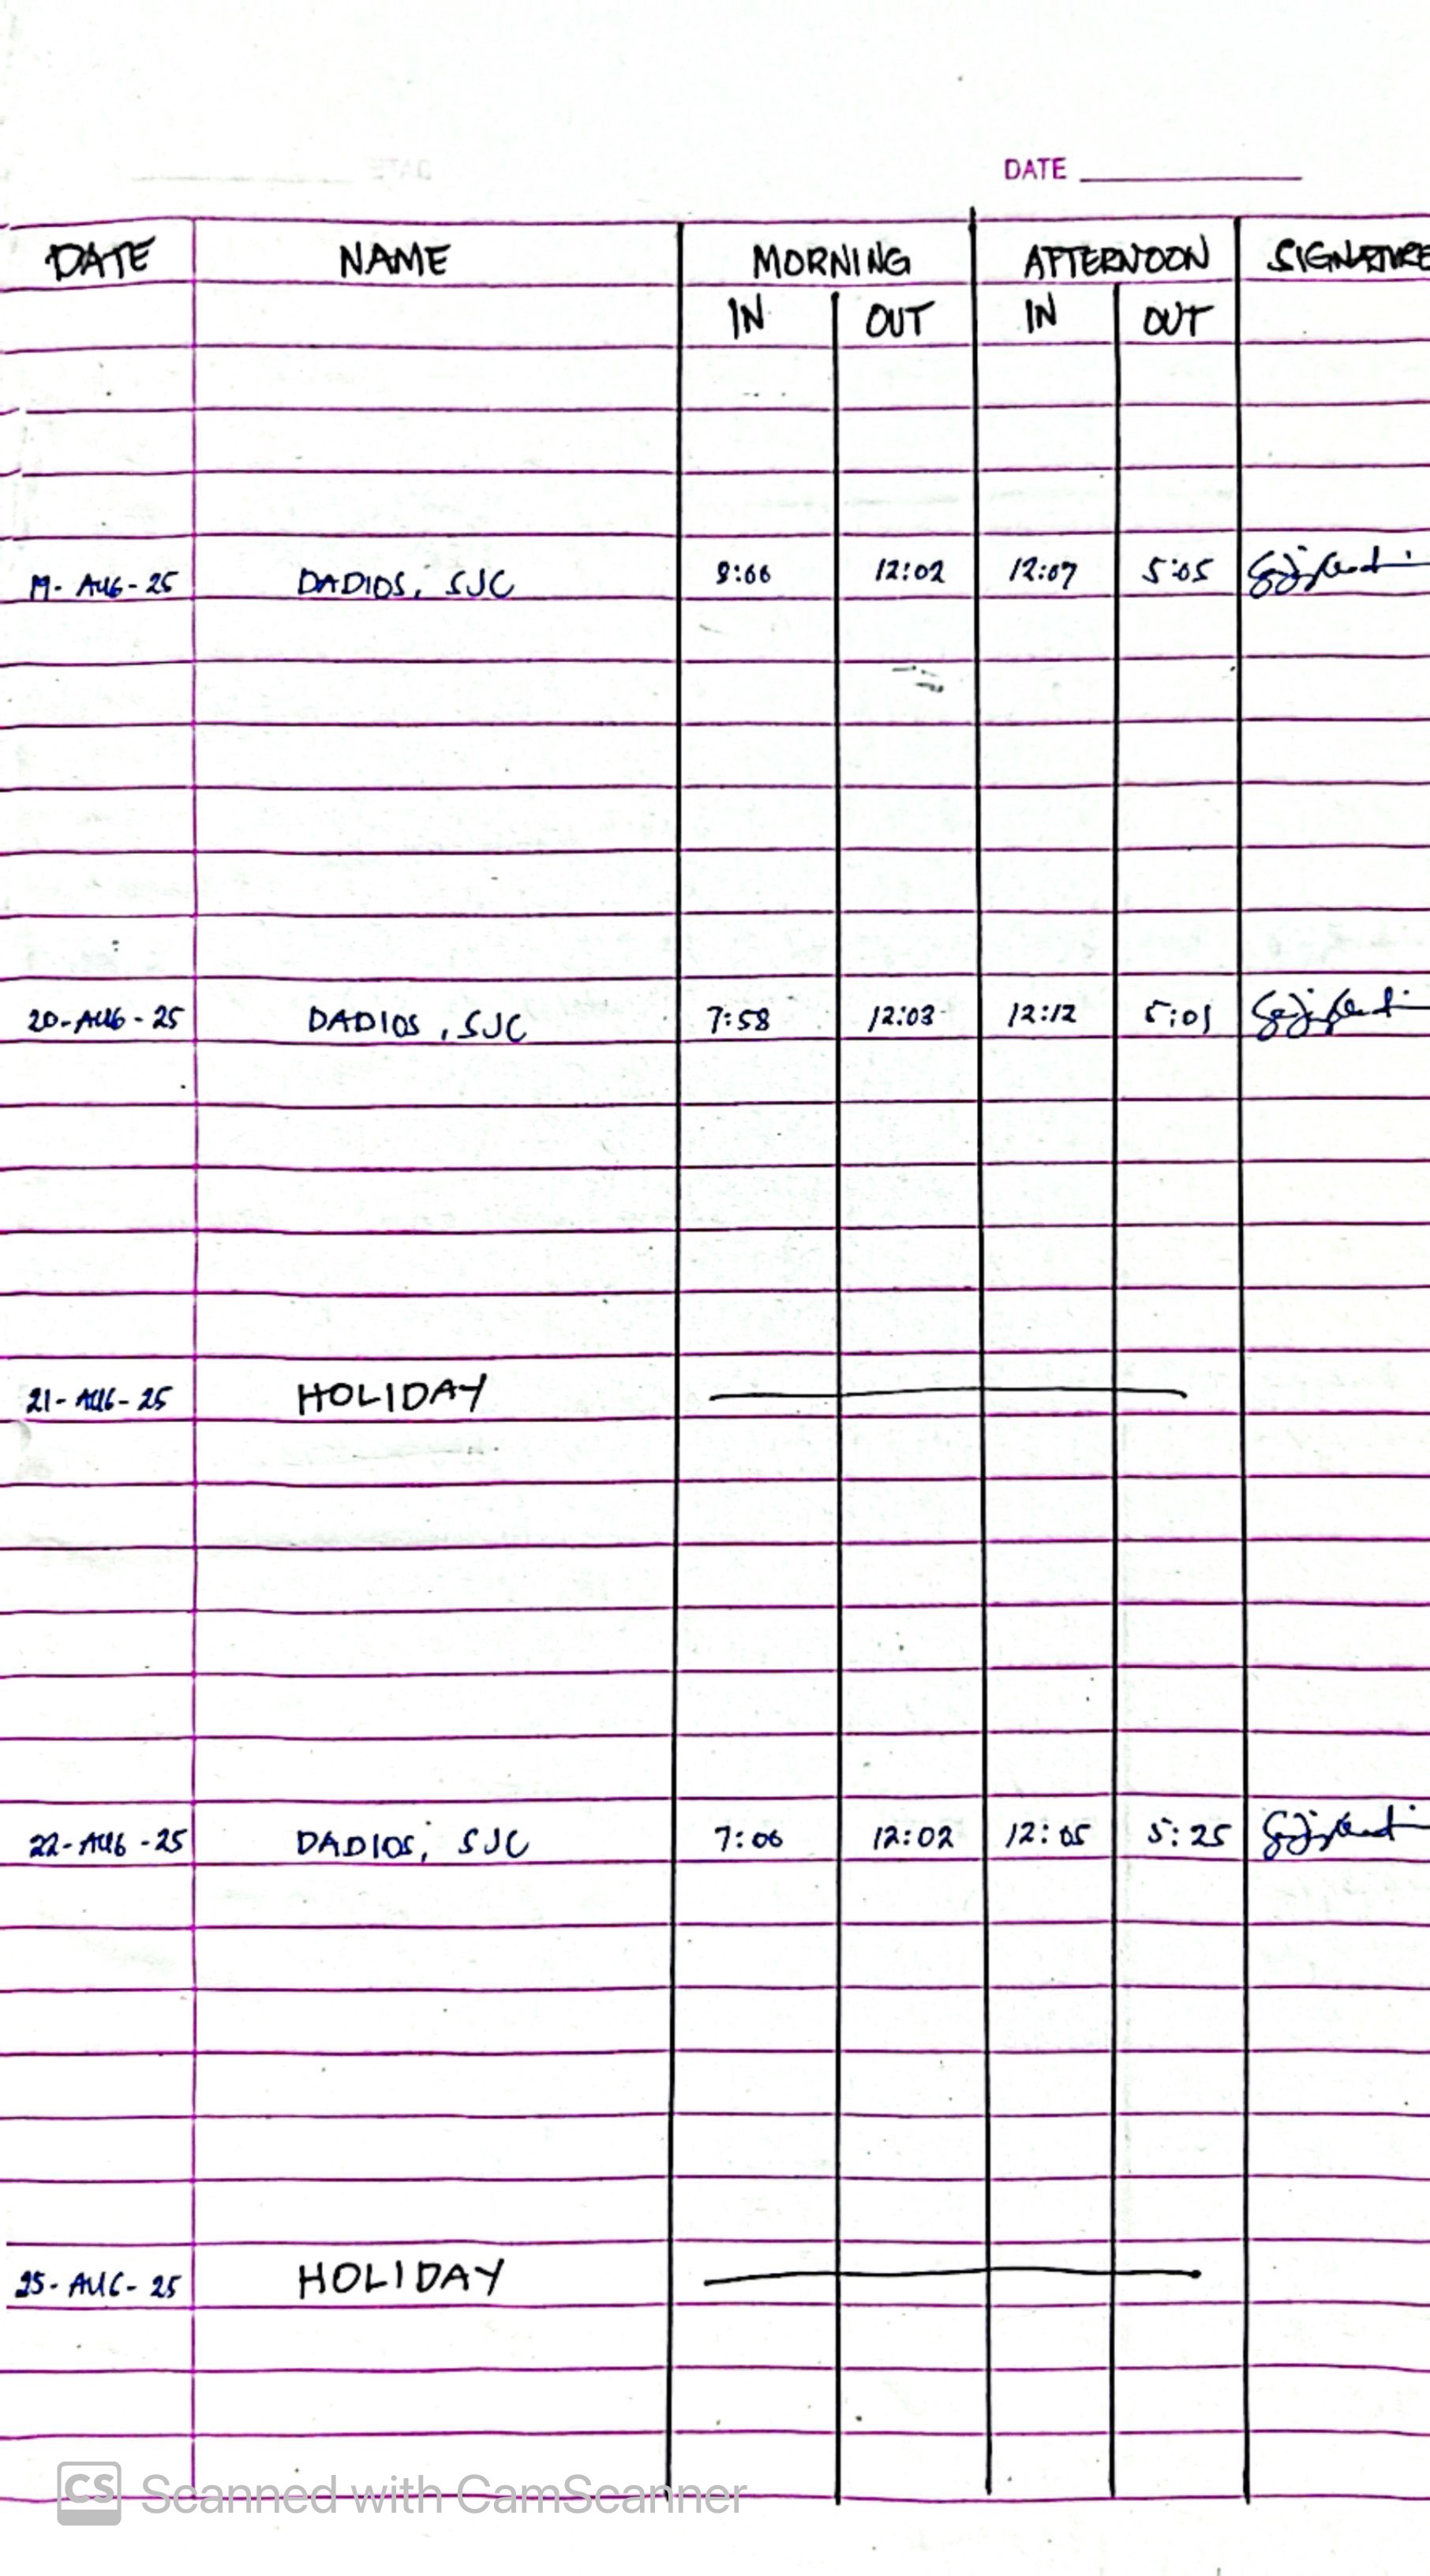 DATE
DATE NAME MORNING AFTERNOON SIGNATURE
IN OUT IN OUT
19-AUG-25 DADIOS, SJC 8:00 12:02 12:07 5:05
20-AUG-25 DADIOS, SJC 7:58 12:03 12:12 5:01
21-AUG-25 HOLIDAY
22-AUG-25 DADIOS, SJC 7:06 12:02 12:05 5:25
25-AUG-25 HOLIDAY
CS Scanned with CamScanner